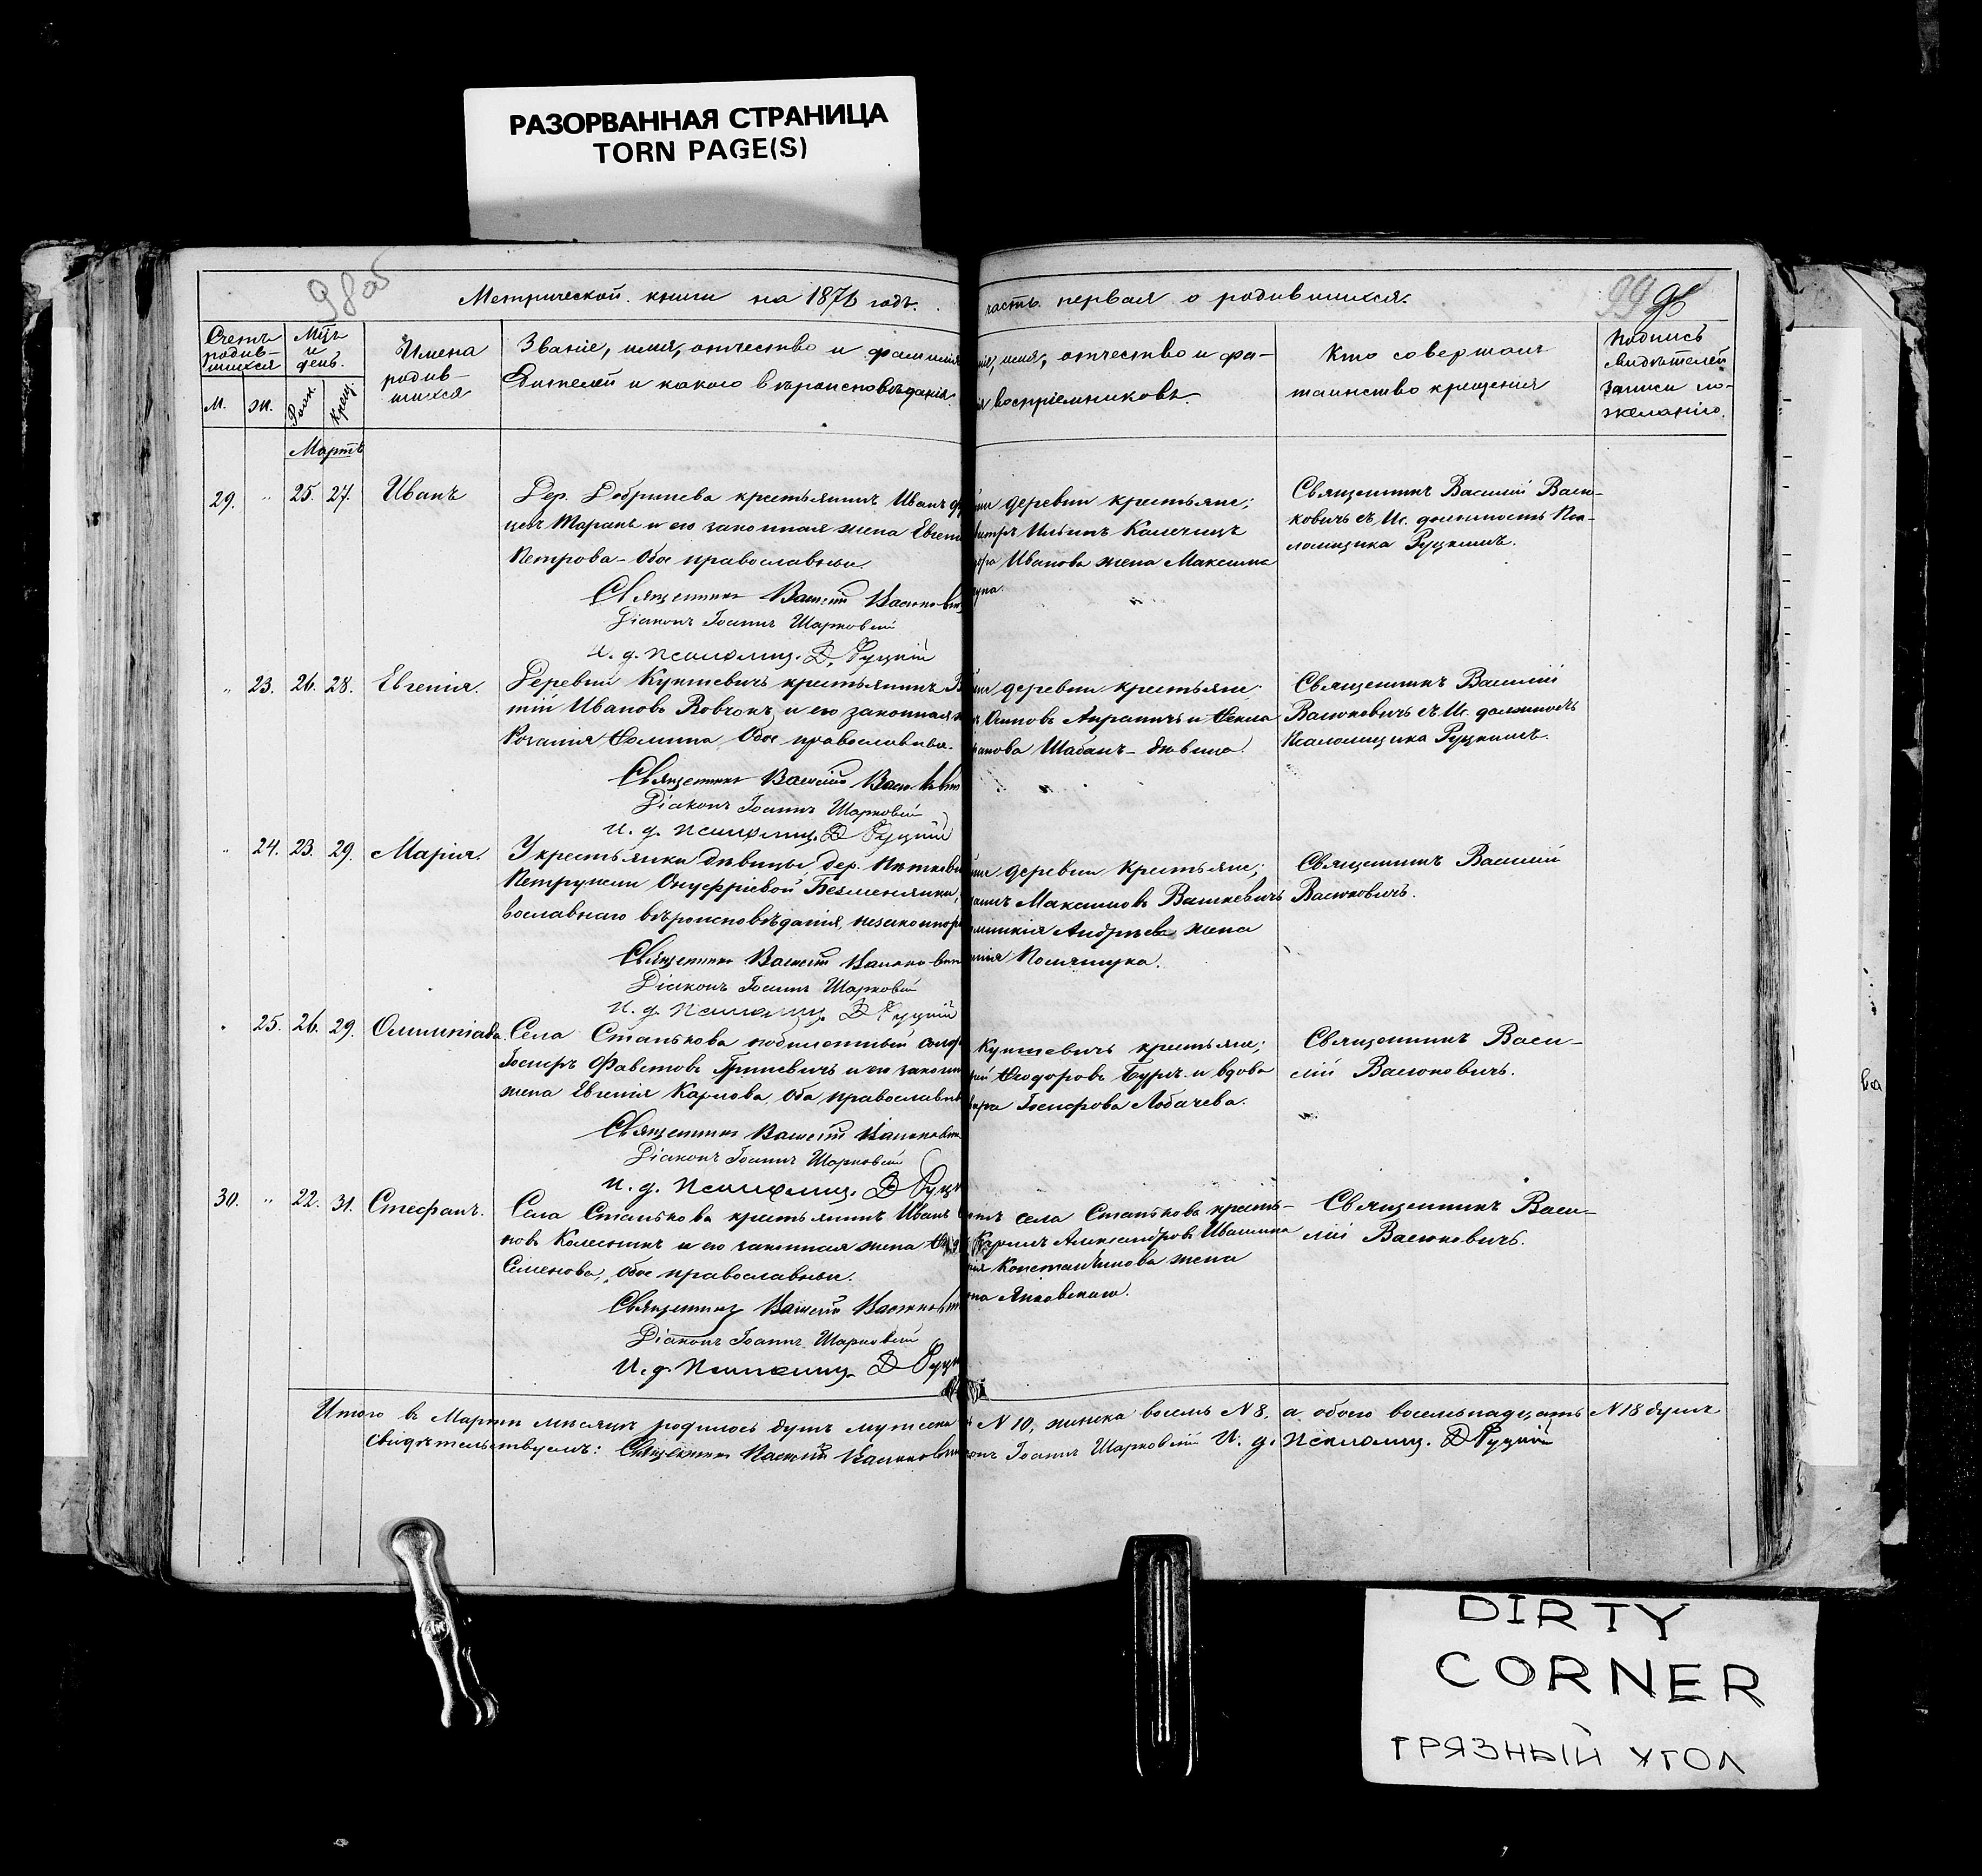 РАЗОРВАННАЯ СТРАНИЦА
TORN PAGE(S)
98об
99
Метрической книги на 1876 годъ.
часть первая о родившихся.
Счетъ родив- шихся
М.
Ж.
Мц҃ъ и день.
Рожд.
Крещ.
Имена родив- шихся
Званіе, имя, отчество и фамилія
родителей и какого вѣроисповѣданія.
имя, отчество и фа-
воспріемниковъ.
Кто совершалъ
таинство крещенія
Подпись
свидѣтелей
записи по
желанію.
Мартъ
29. " 25. 27. Иванъ
Дер. Добринева крестьянинъ Иванъ
Таранъ и его законная жена
Петрова - Обое православные.
Священникъ Василій Васюковичъ
Діаконъ Іоаннъ Шарковскій
И. д. псаломщ. Д. Руцкій
деревни крестьяне;
Ильинъ Калечицъ
Иванова жена Максима
Священникъ Василій Васю-
ковичъ съ И. должность Пса-
ломщика Руцкимъ.
" 23. 26. 28. Евгенія.
Деревни Кунцевичъ крестьянинъ
Ивановъ Вовчокъ и его законная
Ѳомина, Обое православные.
Священникъ Василій
Діаконъ Іоаннъ Шарковскій
И. д. псаломщ. Д. Руцкій
деревни крестьяне;
Осиповъ Апраничъ и Ѳекла
Шабанъ - дѣвица.
Священникъ Василій
Васюковичъ съ И. должность
Псаломщика Руцкимъ.
" 24. 23. 29. Марія.
У крестьянки дѣвицы, дер.
Петрунели Онуфріевой Безменянки,
вославнаго вѣроисповѣданія,
Священникъ Василій
Діаконъ Іоаннъ Шарковскій
И. д. псаломщ. Д. Руцкій
деревни крестьяне;
Максимовъ Вашкевичъ
Андреева жена
Полящука.
Священникъ Василій
Васюковичъ.
" 25. 26. 29. Олимпіада.
Села Станькова
Іосифъ Фавстовъ Гриневичъ и его
жена Евгенія Карпова, Оба
Священникъ Василій
Діаконъ Іоаннъ Шарковскій
И. д. псаломщ. Д.
Кунцевичъ крестьяне;
Ѳеодоровъ Буръ и вдова
Іосифова Лобачева.
Священникъ Васи-
лій Васюковичъ.
30. " 22. 31. Стефанъ.
Села Станькова крестьянинъ Иванъ
Колесникъ и его законная жена
Семенова, Обое православные.
Священникъ Василій
Діаконъ Іоаннъ Шарковскій
И. д. Псаломщ. Д
села Станькова кресть-
Александровъ Ивашина
Константинова жена
Янковскаго.
Священникъ Васи-
лій Васюковичъ.
Итого въ Мартѣ мѣсяцѣ родилось душъ мужеска N 10, женска восемь N 8, а обоего восемьнадцать N 18 душъ
Свидѣтельствуемъ: Священникъ Василій Іоаннъ Шарковскій И. д. псаломщ. Д Руцкій
ва
DIRTY
CORNER
ГРЯЗНЫЙ УГОЛ